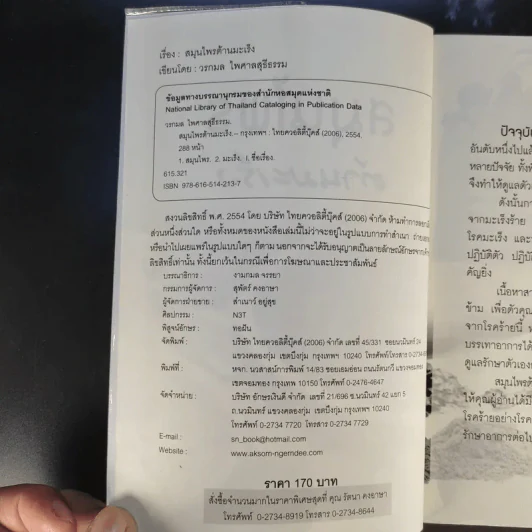 เรื่อง : สมุนไพรต้านมะเร็ง
เขียนโดย : วรกมล ไพศาลสุธีธรรม
ข้อมูลทางบรรณานุกรมของสำนักหอสมุดแห่งชาติ
National Library of Thailand Cataloging in Publication Data
วรกมล ไพศาลสุธีธรรม.
สมุนไพรต้านมะเร็ง.-- กรุงเทพฯ : ไทยควอลิตี้บุ๊คส์ (2006), 2554.
288 หน้า
1. สมุนไพร. 2. มะเร็ง. I. ชื่อเรื่อง.
615.321
ISBN 978-616-514-213-7
สงวนลิขสิทธิ์ พ.ศ. 2554 โดย บริษัท ไทยควอลิตี้บุ๊คส์ (2006) จำกัด ห้ามทำการลอกเลียน
ส่วนหนึ่งส่วนใด หรือทั้งหมดของหนังสือเล่มนี้ไม่ว่าจะอยู่ในรูปแบบการทำสำเนา ถ่ายเอกสาร
หรือนำไปเผยแพร่ในรูปแบบใดๆ ก็ตาม นอกจากจะได้รับอนุญาตเป็นลายลักษณ์อักษรจากเจ้าของ
ลิขสิทธิ์เท่านั้น ทั้งนี้ยกเว้นในกรณีเพื่อการโฆษณาและประชาสัมพันธ์
บรรณาธิการ : งามกมล จรรยา
กรรมการผู้จัดการ : สุพัตร์ คงอาษา
ผู้จัดการฝ่ายขาย : สำเนาว์ อยู่สุข
ศิลปกรรม : N3T
พิสูจน์อักษร : ทอมีน
จัดพิมพ์ : บริษัท ไทยควอลิตี้บุ๊คส์ (2006) จำกัด เลขที่ 45/331 ซอยนวมินทร์ 24
แขวงคลองกุ่ม เขตบึงกุ่ม กรุงเทพฯ 10240 โทรศัพท์/โทรสาร
พิมพ์ที่ : หจก. นวสาสน์การพิมพ์ 14/83 ซอยเอมอ่อน ถนนรัตนกวี แขวงจอมทอง
เขตจอมทอง กรุงเทพ 10150 โทรศัพท์ 0-2476-4647
จัดจำหน่าย : บริษัท อักษรเงินดี จำกัด เลขที่ 21/696 ซ.นวมินทร์ 42 แยก 5
ถ.นวมินทร์ แขวงคลองกุ่ม เขตบึงกุ่ม กรุงเทพฯ 10240
โทรศัพท์ 0-2734 7720 โทรสาร 0-2734 7729
E-mail : sn_book@hotmail.com
Website : www.aksorn-ngerndee.com
ราคา 170 บาท
สั่งซื้อจำนวนมากในราคาพิเศษสุดที่ คุณ รัตนา คงอาษา
โทรศัพท์ 0-2734-8919 โทรสาร 0-2734-8644
อันดับหนึ่งไป
หลายปัจจัย
จึงทำให้ดูแลตัว
ดังนั้นกา
จากมะเร็งร้าย
โรคมะเร็ง และ
ปฏิบัติตัว ปฏิบั
คัญยิ่ง
เนื้อหาสา
ข้าม เพื่อตัวคุณ
จากโรคร้ายนี้
บรรเทาอาการได้
ดูแลรักษาตัวเอง
สมุนไพรต้
ให้คุณผู้อ่านได้
โรคร้ายอย่างโรค
รักษาอาการต่อไป